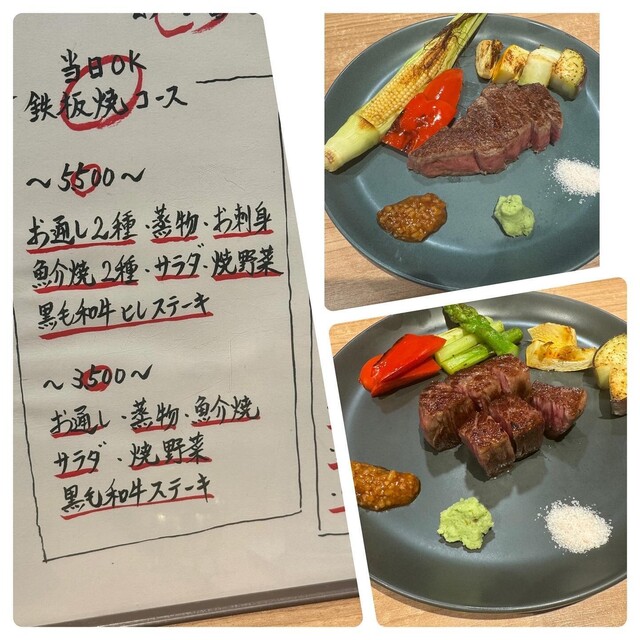 当日OK
鉄板焼コース
～5500～
お通し2種・蒸物・お刺身
魚介焼2種・サラダ・焼野菜
黒毛和牛ヒレステーキ
～3500～
お通し・蒸物・魚介焼
サラダ・焼野菜
黒毛和牛ステーキ